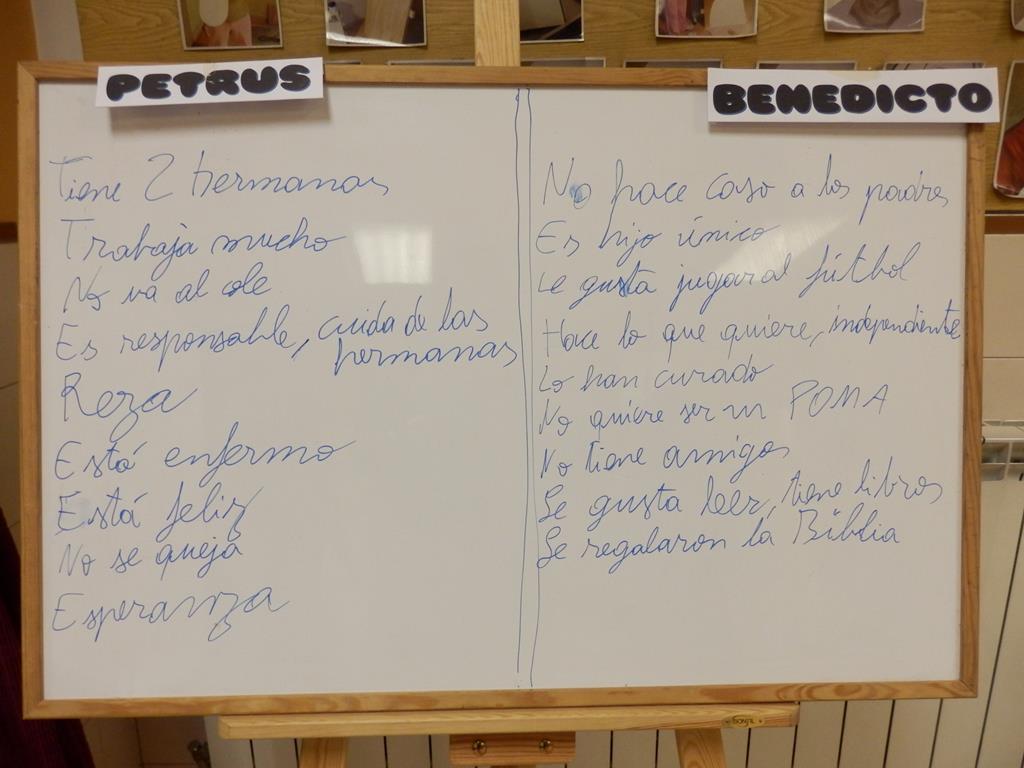 PETRUS
Tiene 2 hermanas
Trabaja mucho
No va al cole
Es responsable, cuida de las
hermanas
Reza
Está enfermo
Está feliz
No se queja
Esperanza
BENEDICTO
No hace caso a los padres
Es hijo único
Le gusta jugar al fútbol
Hace lo que quiere, independiente
Lo han curado
No quiere ser un POMA
No tiene amigos
Le gusta leer, tiene libros
Le regalaron la Biblia